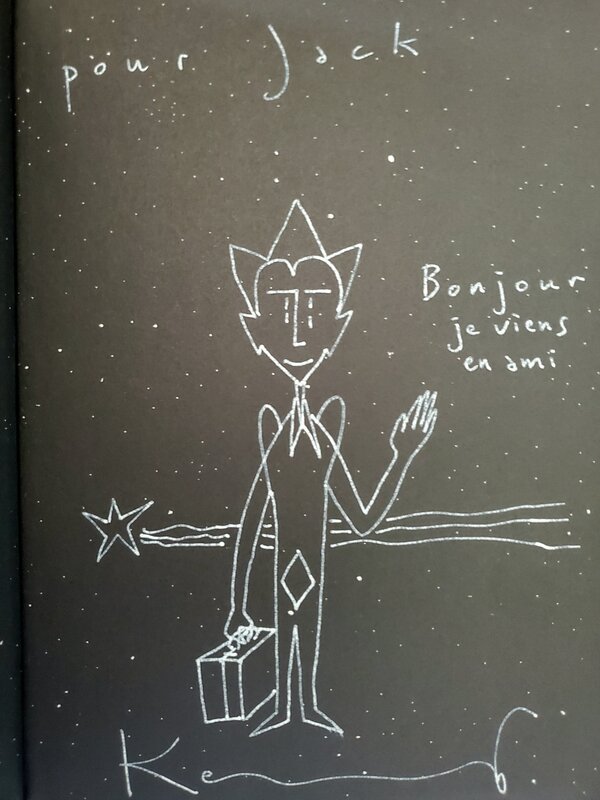 pour Jack
Bonjour
je viens
en ami